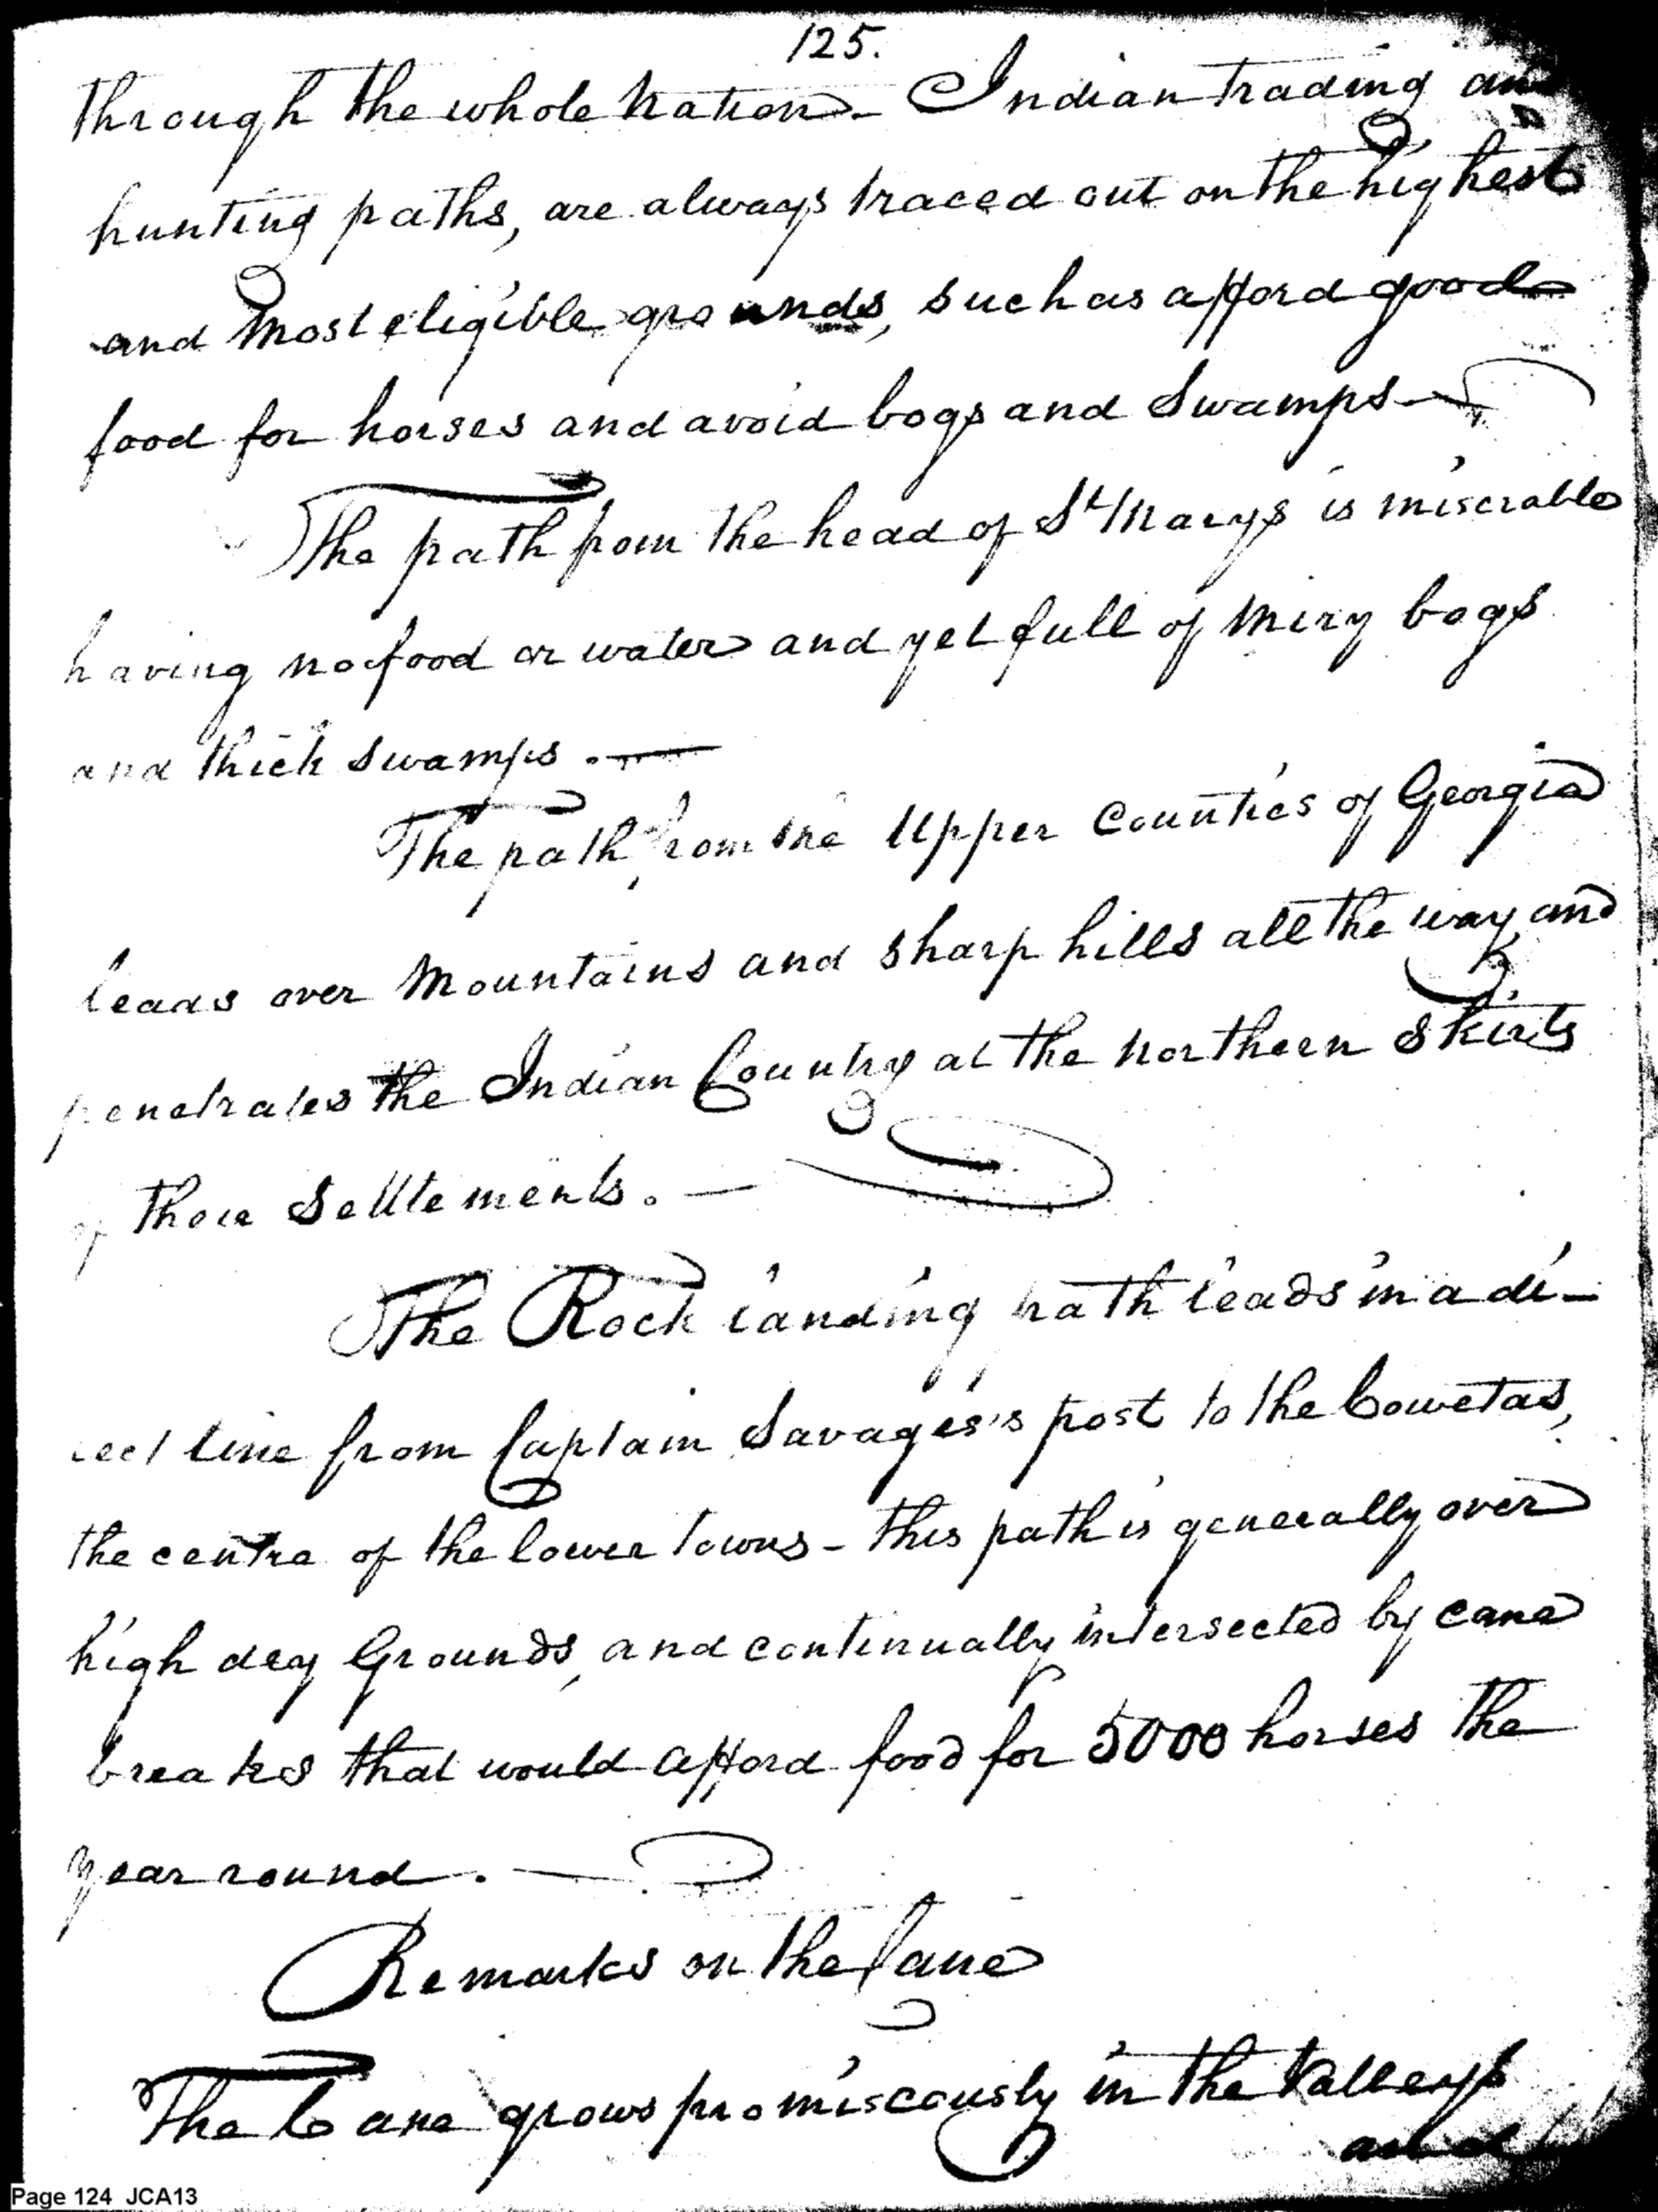 125.
through the whole Nation. - Indian trading and
hunting paths, are always traced out on the highest
and most eligible grounds, such as afford good
food for horses and avoid bogs and Swamps -
The path from the head of St Marys is miserable
having no food or water and yet full of miry bogs
and thick swamps. -
The path from the Upper Counties of Georgia
leads over Mountains and sharp hills all the way, and
penetrates the Indian Country at the northern Skirts
of their Settlements. -
The Rock landing path leads in a di-
rect line from Captain Savages's post to the Cowetas,
the centre of the lower towns - this path is generally over
high dry Grounds, and continually intersected by cane
breaks that would afford food for 5000 horses the
year round. -
Remarks on the Cane
The Cane grows promiscously in the Valleys
and
Page 124 JCA13